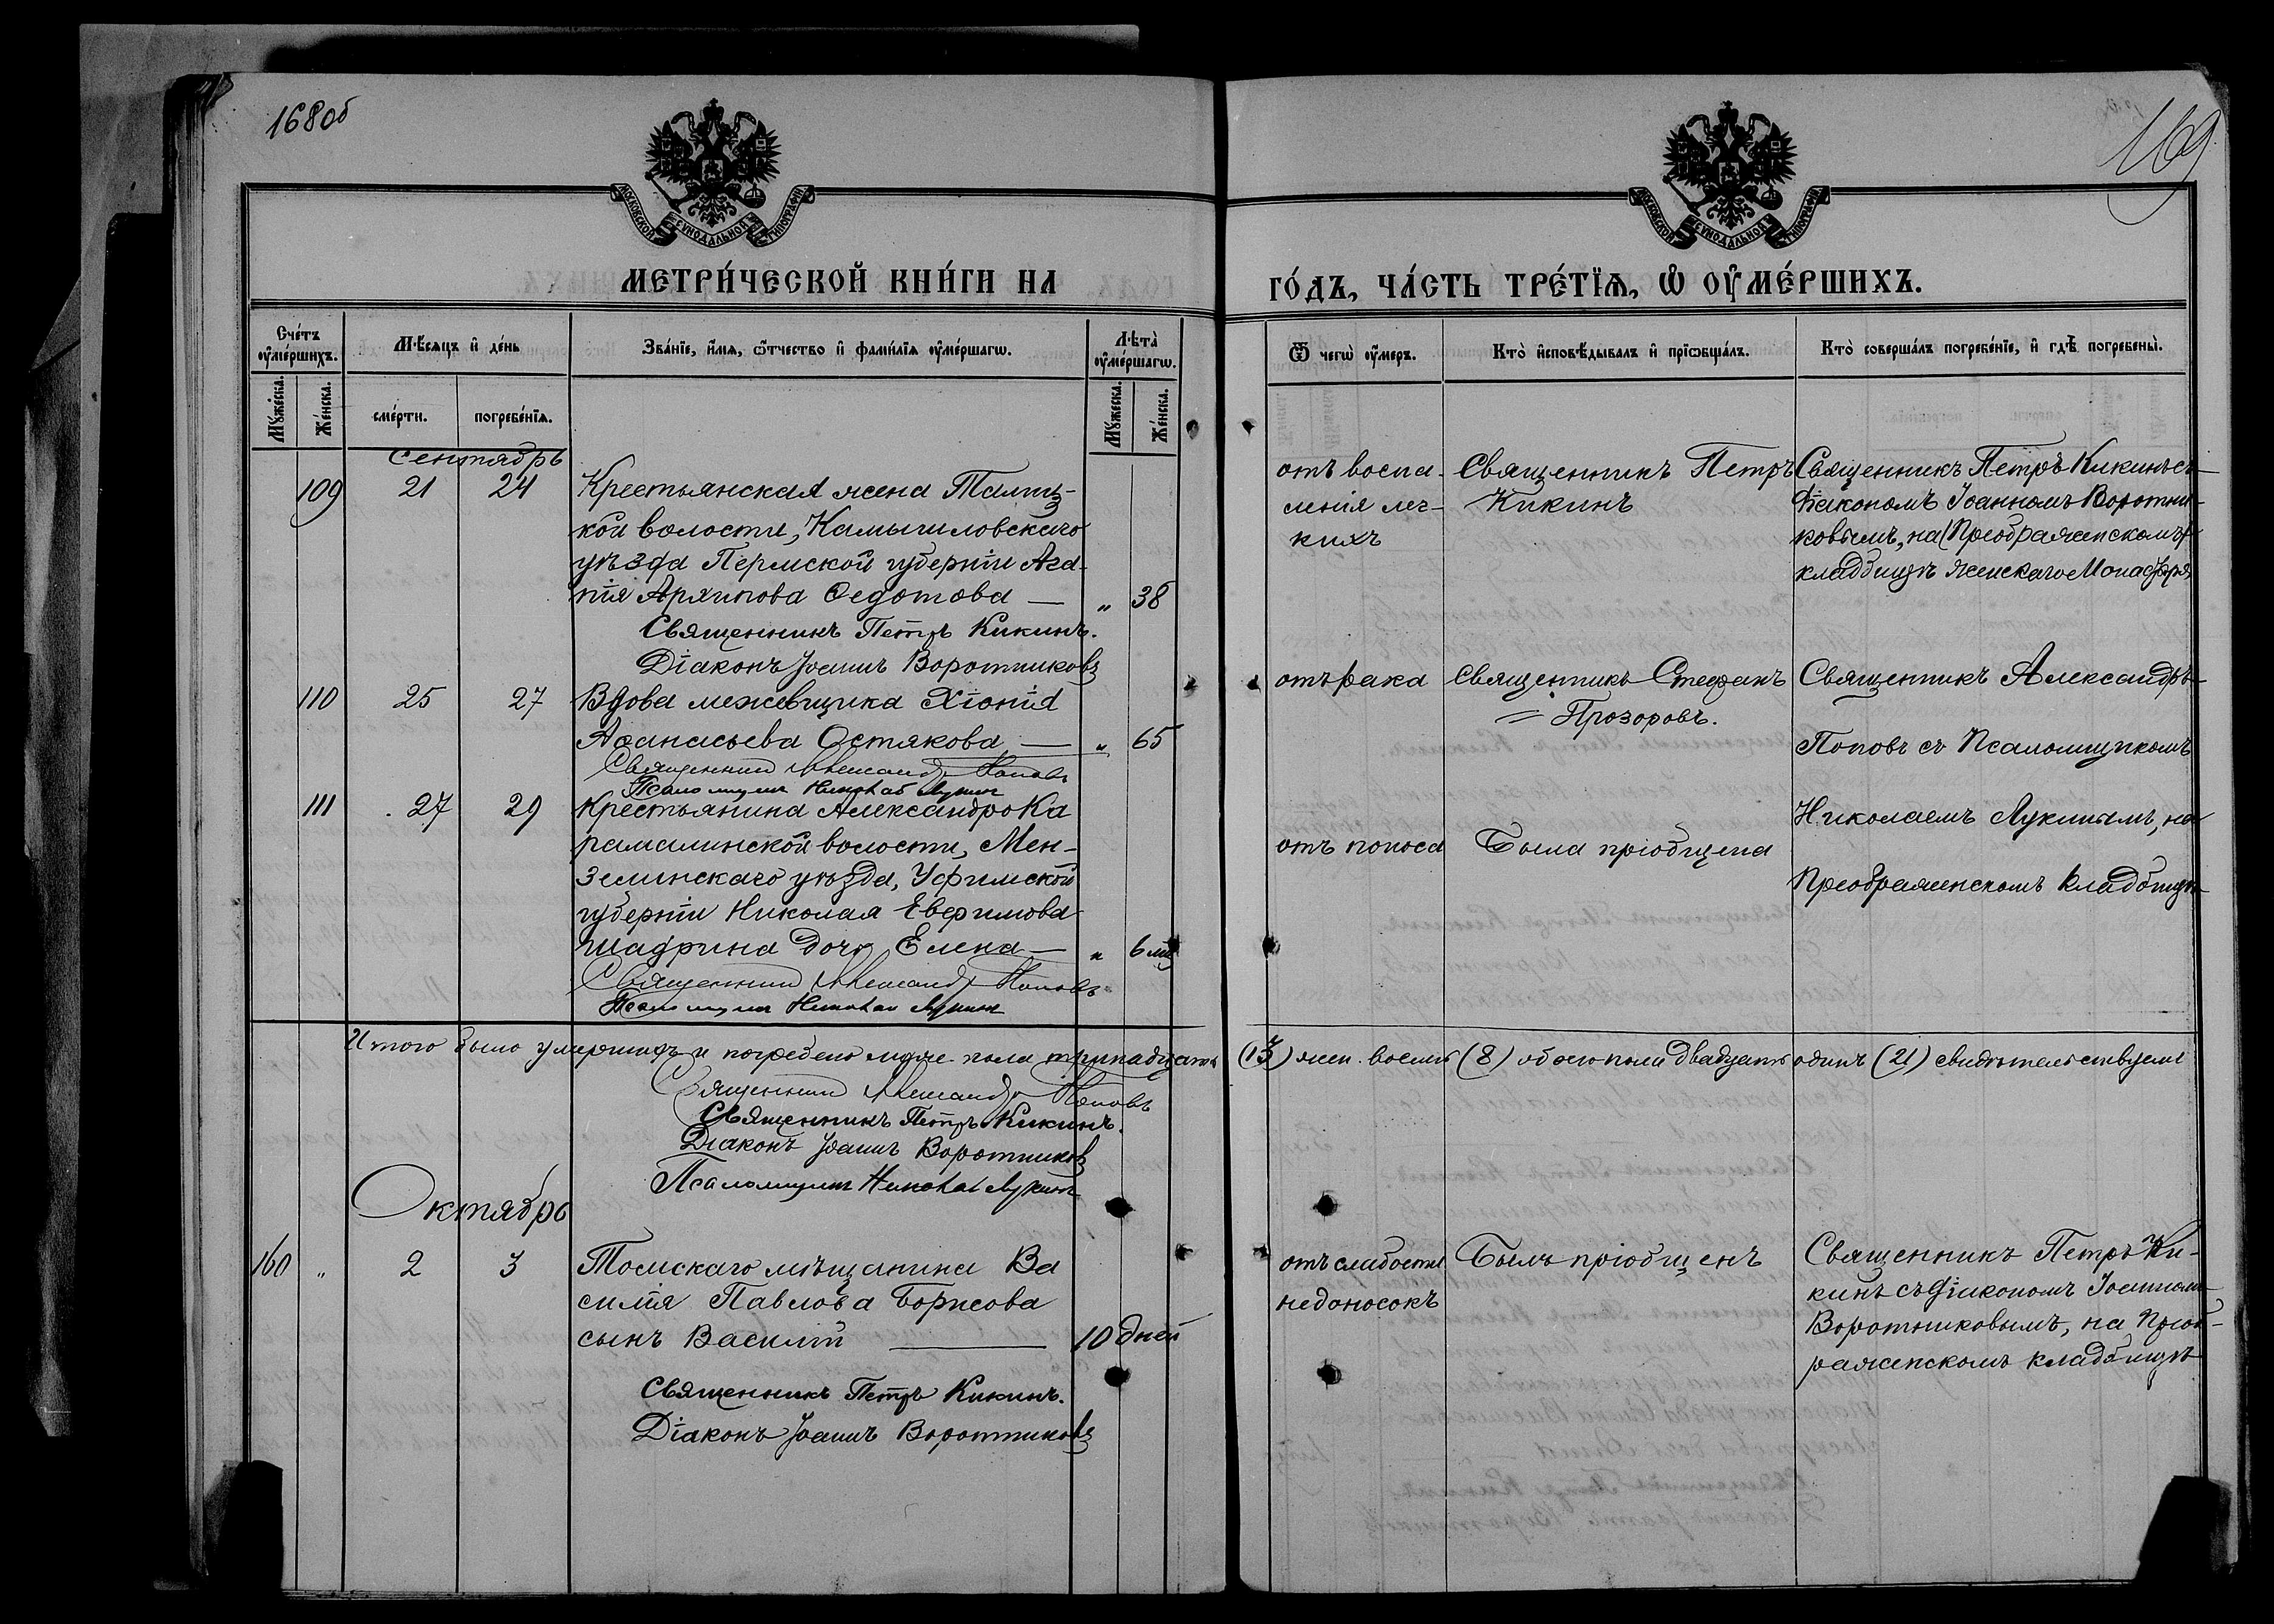 168об
169
МОСКОВСКОЙ СѴНОДАЛЬНОЙ ТИПОГРАФІИ
МОСКОВСКОЙ СѴНОДАЛЬНОЙ ТИПОГРАФІИ
МЕТРИ́ЧЕСКОЙ КНИ́ГИ НА
ГО́ДЪ, ЧА́СТЬ ТРЕ́ТЇѦ, Ѡ҆ ОУ҆МЕ́РШИХЪ.
Сче́тъ оу҆ме́ршихъ.
Мꙋ́жеска.
Же́нска.
Мѣ́сѧцъ и҆ де́нь
сме́рти.
погребе́нїѧ.
Зва́нїе, и҆́мѧ, ѻ҆́тчество и҆ фами́лїѧ оу҆ме́ршагѡ.
Лѣ̀та оу҆ме́ршагѡ.
Мꙋ́жеска.
Же́нска.
Ѿ чегѡ̀ оу҆́меръ.
Кто̀ и҆сповѣ́дывалъ и҆ прїѡбща́лъ.
Кто̀ соверша́лъ погребе́нїе, и҆ гдѣ̀ погребены̀.
Сентябрь
109 21 24
Крестьянская жена Талиц-
кой волости, Камышловскаго
уѣзда Пермской губерніи Ага-
пія Архипова Ѳедотова — „ 38
Священникъ Петръ Кикинъ.
Діаконъ Іоаннъ Воротниковъ
отъ воспа-
ленія лег-
кихъ
Священникъ Петръ
Кикинъ
Священникъ Петръ Кикинъ съ
Діакономъ Іоанномъ Воротни-
ковымъ, на Преображенскомъ
кладбищѣ женскаго Монастыря
110 25 27
Вдова межевщика Хіонія
Аѳанасьева Остякова — „ 65
Священникъ Александръ Поповъ
Псаломщикъ Николай Лукинъ
отъ рака
Священникъ Стефанъ
= Прозоровъ.
Священникъ Александръ
Поповъ съ Псаломщикомъ
Николаемъ Лукинымъ, на
Преображенскомъ кладбищѣ
111 27 29
Крестьянина Александро Ка
рамалинской волости, Мен-
зелинскаго уѣзда, Уфимской
губерніи Николая Евфимова
Шадрина дочь Елена — „ 6 мѣ
Священникъ Александръ Поповъ
Псаломщикъ Николай Лукинъ
отъ поноса
Была пріобщена
Итого было умершихъ и погребено муже. пола тринадцать (13) жен. восемь (8) обоего пола двадцать одинъ (21) свидѣтельствуемъ
Священникъ Александръ Поповъ
Священникъ Петръ Кикинъ.
Діаконъ Іоаннъ Воротниковъ
Псаломщикъ Николай Лукинъ
Октябрь
160 „ 2 3
Томскаго мѣщанина Ва
силія Павлова Борисова
сынъ Василій — 10 дней
Священникъ Петръ Кикинъ.
Діаконъ Іоаннъ Воротниковъ
отъ слабости
недоносокъ
Былъ пріобщенъ
Священникъ Петръ Ки-
кинъ съ діакономъ Іоанномъ
Воротниковымъ, на Преоб-
раженскомъ кладбищѣ